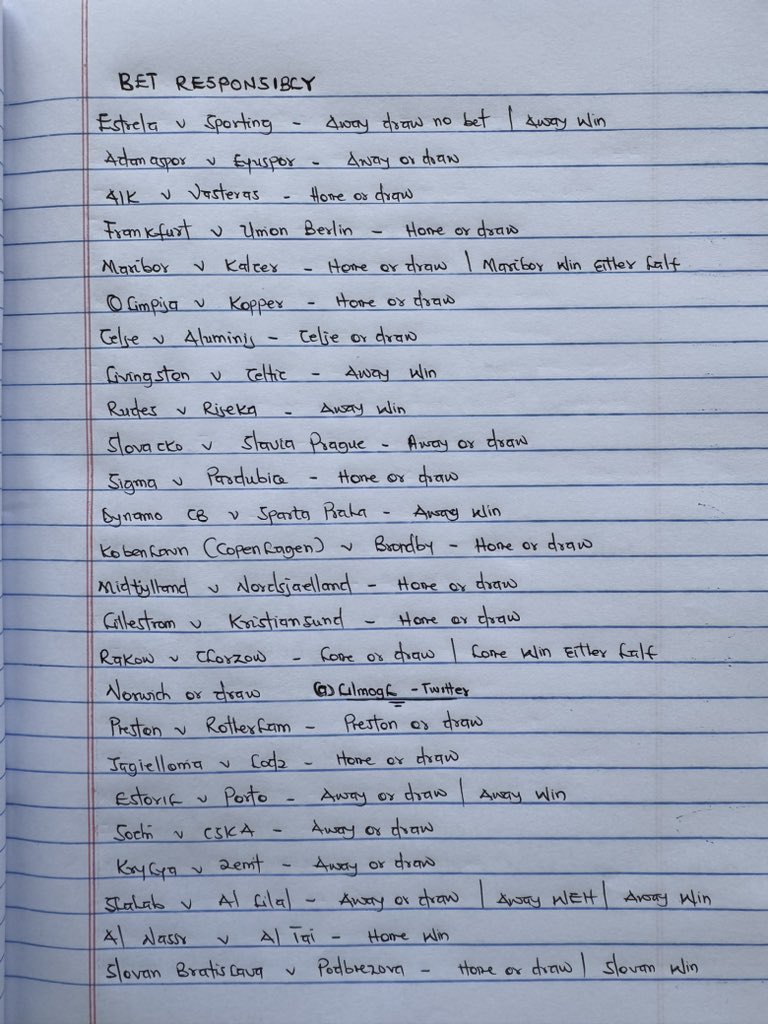 BET RESPONSIBLY
Estrela v Sporting - Away draw no bet | Away Win
Adanaspor v Eyuspor - Away or draw
AIK v Vasteras - Home or draw
Frankfurt v Union Berlin - Home or draw
Maribor v Kalcer - Home or draw | Maribor Win Either half
Olimpija v Kopper - Home or draw
Celje v Aluminij - Celje or draw
Livingston v Celtic - Away Win
Rudes v Rijeka - Away Win
Slovacko v Slavia Prague - Away or draw
Sigma v Pardubice - Home or draw
Dynamo CB v Sparta Praha - Away Win
Kobenhavn (Copenhagen) v Brondby - Home or draw
Midtjylland v Nordsjaelland - Home or draw
Lillestrom v Kristiansund - Home or draw
Rakow v Chorzow - home or draw | home Win Either half
Norwich or draw @ - Twitter
Preston v Rotherham - Preston or draw
Jagiellonia v Lodz - Home or draw
Estoril v Porto - Away or draw | Away Win
Sochi v CSKA - Away or draw
Krylya v Zenit - Away or draw
Shabab v Al hilal - Away or draw | Away WEH | Away Win
Al Nassr v Al Tai - Home Win
Slovan Bratislava v Podbrezova - Home or draw | Slovan Win